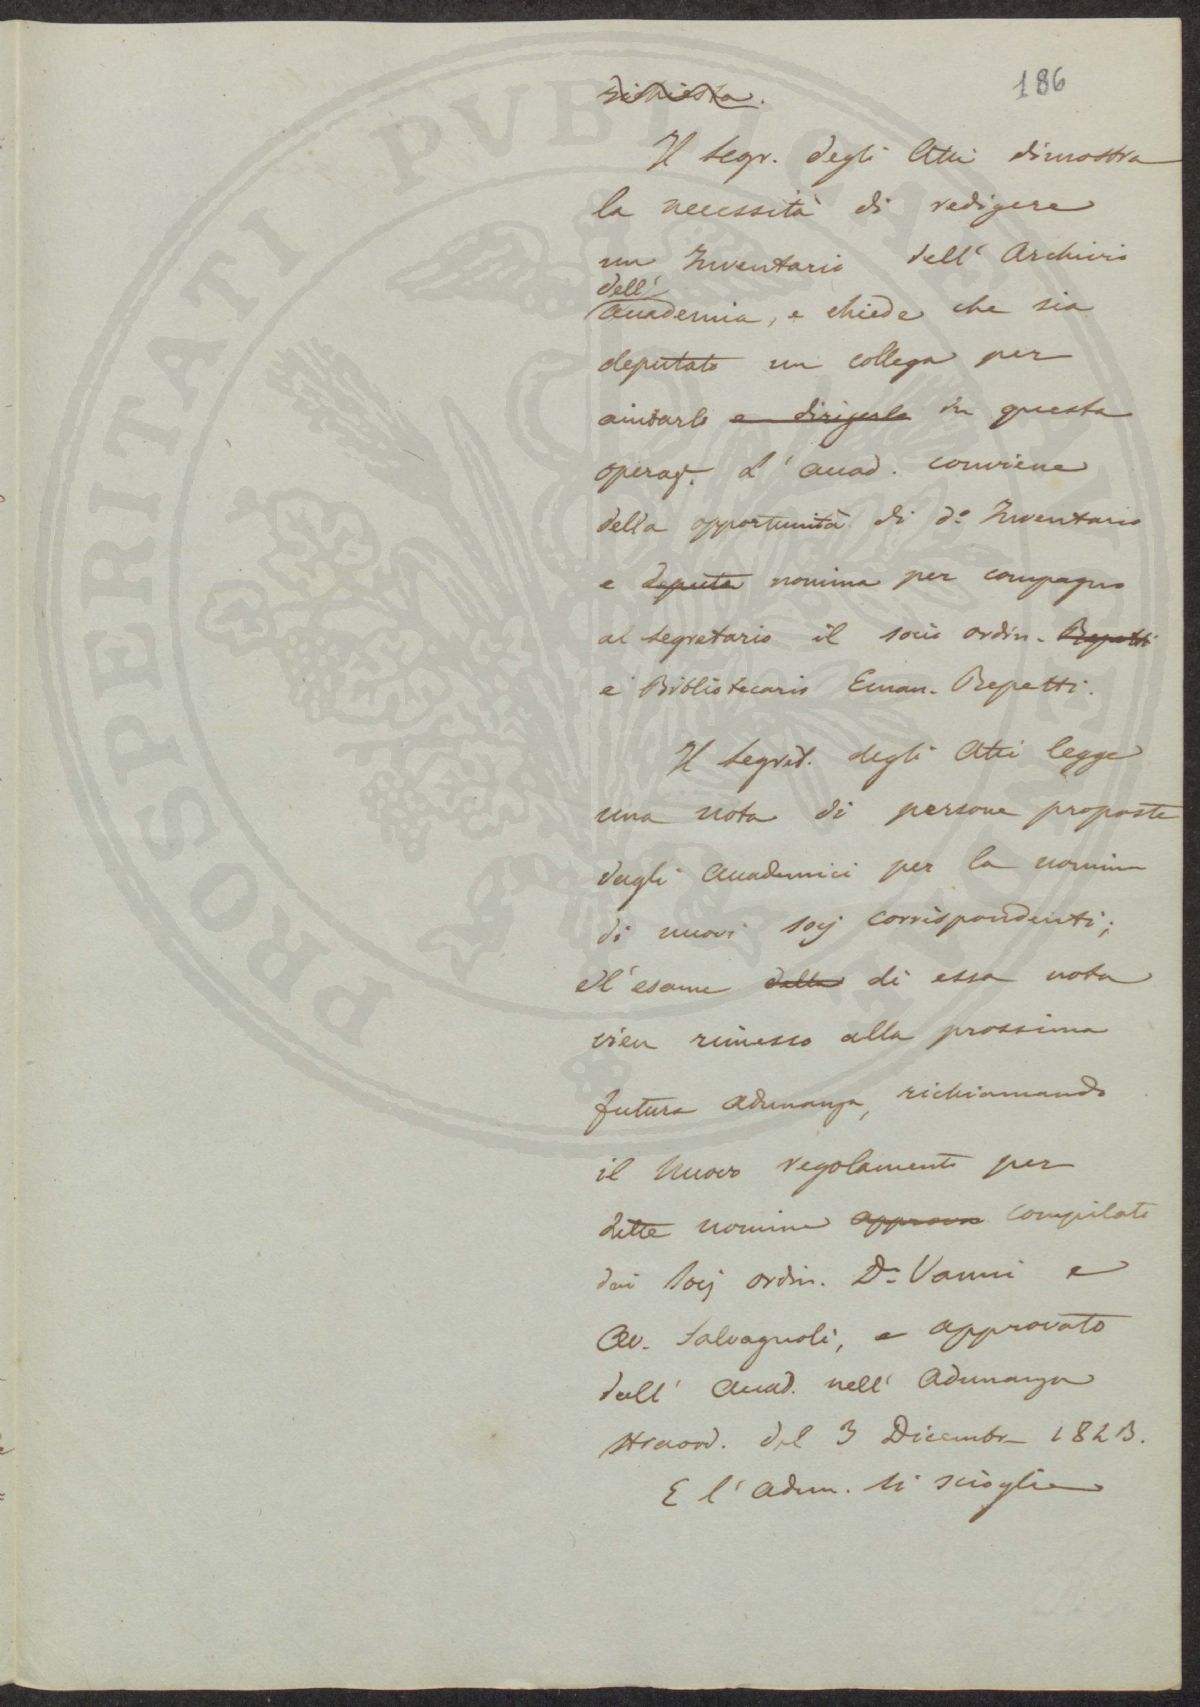 186
richiesta.
Il Segr. degli Atti dimostra
la necessità di redigere
un Inventario dell' Archivio
dell'
Accademia, e chiede che sia
deputato un collega per
aiutarlo e dirigerlo in questa
operaz. L' Accad. conviene
della opportunità di do. Inventario
e deputa nomina per compagno
al Segretario il socio ordin. Repetti
e Bibliotecario Eman. Repetti.
Il Segret. degli Atti legge
una nota di persone proposte
dagli Accademici per la nomina
di nuovi socj corrispondenti;
e l'esame della di essa nota
vien rimesso alla prossima
futura adunanza, richiamando
il nuovo regolamento per
dette nomine approva compilato
dai Socj ordin. Dr. Vanni e
Av. Salvagnoli, e approvato
dall' Accad. nell' Adunanza
straord. del 3 Dicembr 1823.
E l' adun. si scioglie
PROSPERITATI PVBLICAE AVGENDAE